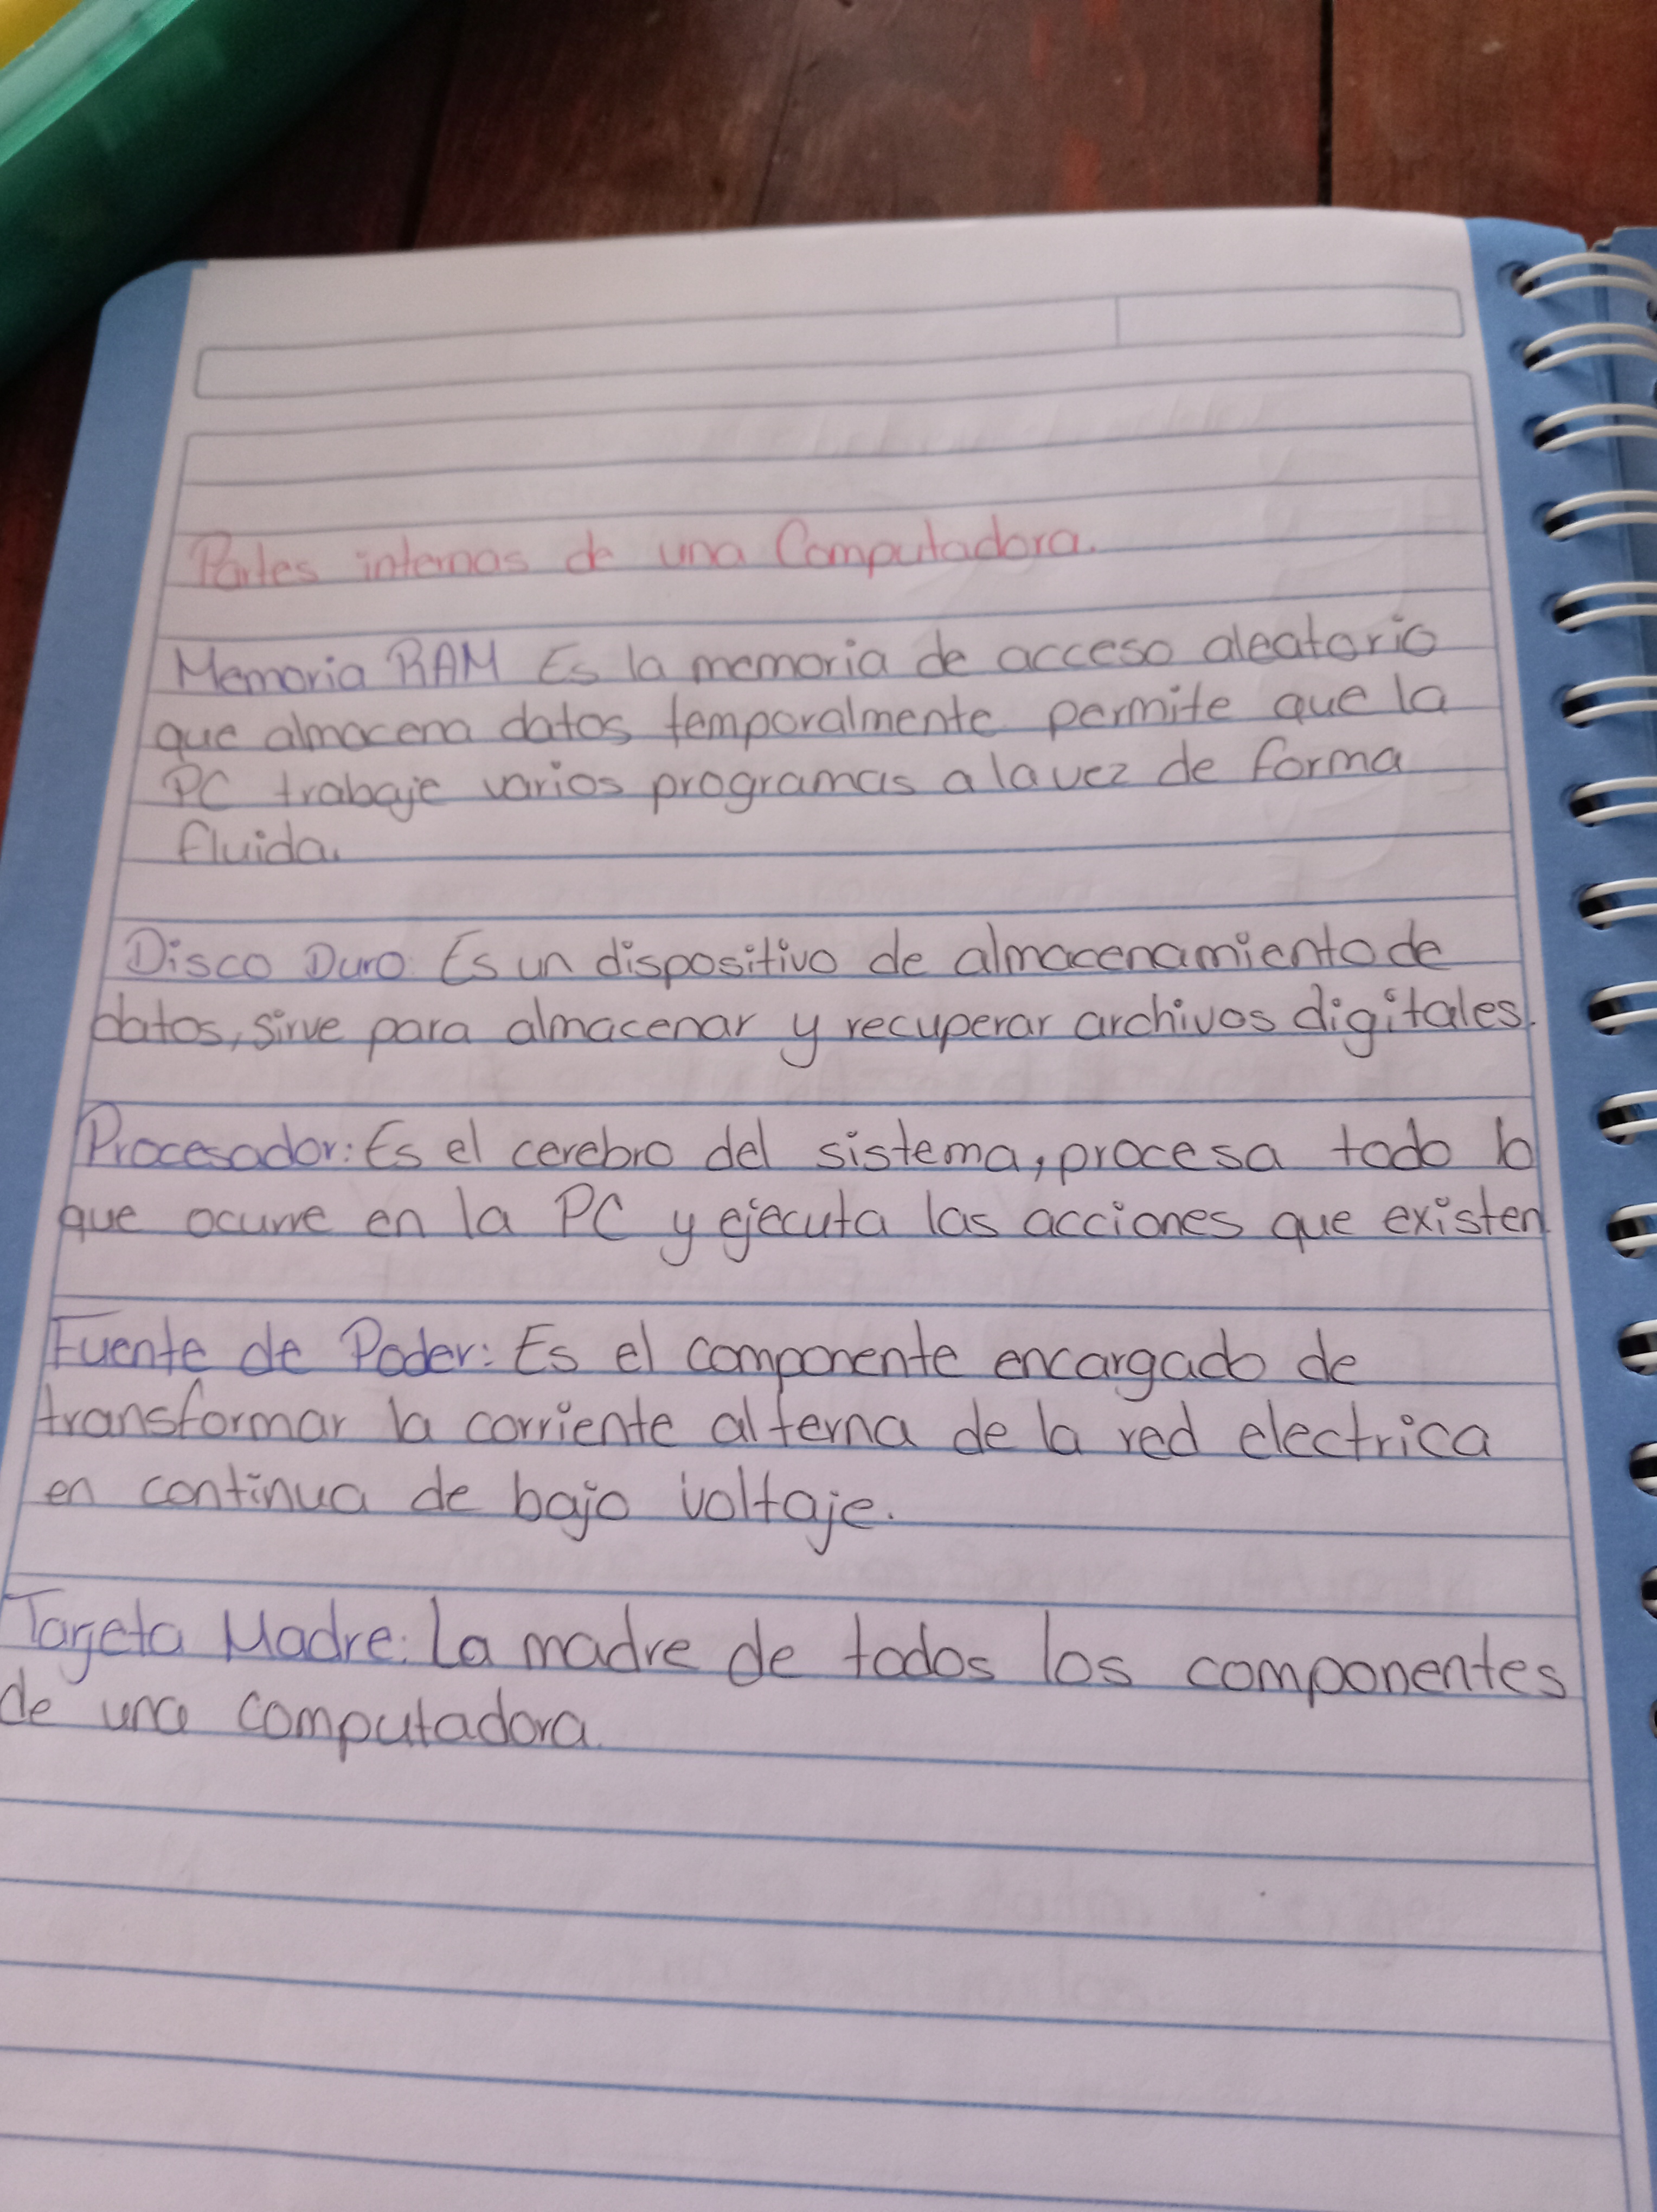 Partes internas de una Computadora.
Memoria RAM Es la memoria de acceso aleatorio
que almacena datos temporalmente permite que la
PC trabaje varios programas a la vez de forma
fluida.
Disco Duro: Es un dispositivo de almacenamiento de
datos, sirve para almacenar y recuperar archivos digitales.
Procesador: Es el cerebro del sistema, procesa todo lo
que ocurre en la PC y ejecuta las acciones que existen.
Fuente de Poder: Es el componente encargado de
transformar la corriente alterna de la red electrica
en continua de bajo voltaje.
Tarjeta Madre: La madre de todos los componentes
de una computadora.